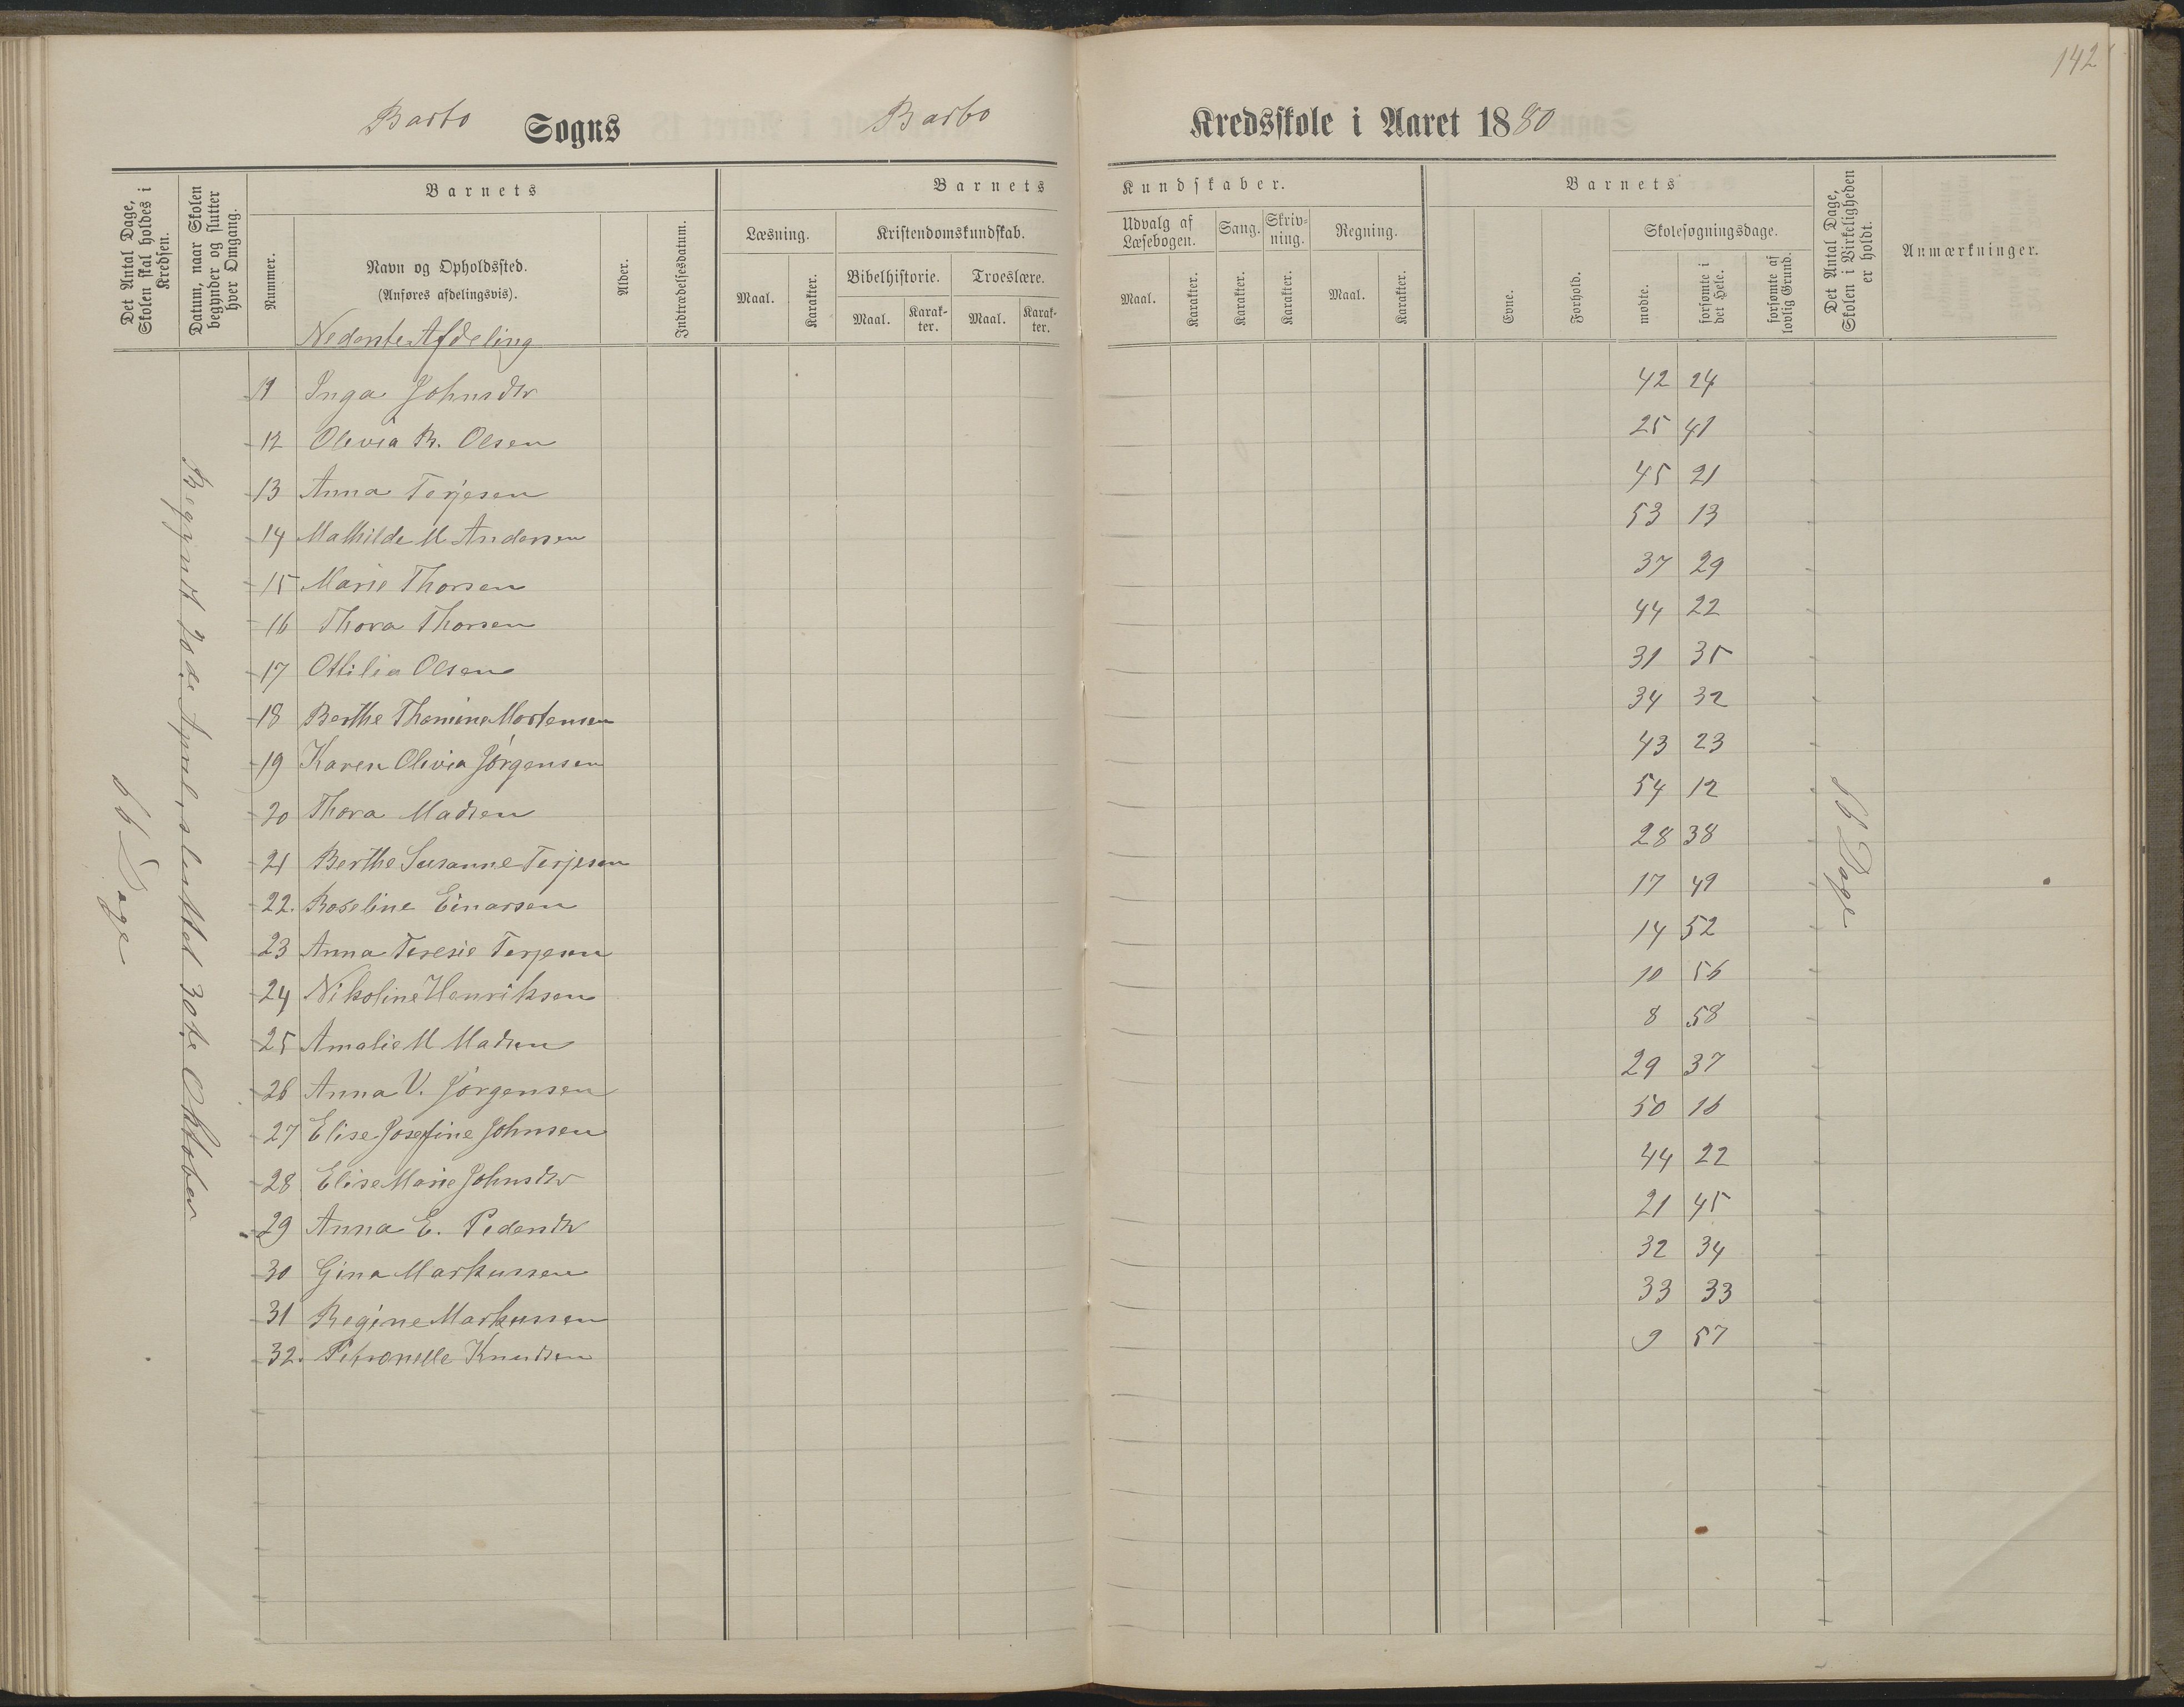 142
Barbo Sogns Barbo Kredsskole i Aaret 1880
Det Antal Dage, Skolen skal holdes i Kredsen.
Datum, naar Skolen begynder og slutter hver Omgang.
Barnets
Nummer.
Navn og Opholdssted.
(Anføres afdelingsvis).
Alder.
Indtrædelsesdatum.
Barnets Kundskaber.
Læsning.
Maal.
Karakter.
Kristendomskundskab.
Bibelhistorie.
Maal.
Karakter.
Troeslære.
Maal.
Karakter.
Udvalg af Læsebogen.
Maal.
Karakter.
Sang.
Karakter.
Skrivning.
Karakter.
Regning.
Maal.
Karakter.
Barnets
Evne.
Forhold.
Skolesøgningsdage.
mødte.
forsømte i det Hele.
forsømte af lovlig Grund.
Det Antal Dage, Skolen i Virkeligheden er holdt.
Anmærkninger.
Nederste Afdeling
66 Dage
Begyndt 20de April, sluttet 30te Oktober
11 Inga Johnsdtr 42 24
12 Olivia R. Olsen 25 41
13 Anna Terjesen 45 21
14 Mathilde M Andersen 53 13
15 Marie Thorsen 37 29
16 Thora Thorsen 44 22
17 Ottilia Olsen 31 35
18 Berthe Thomine Mortensen 34 32
19 Karen Olivia Jørgensen 43 23
20 Thora Madsen 54 12
21 Berthe Susanne Terjesen 28 38
22. Roseline Einarsen 17 49
23 Anna Teresie Terjesen 14 52
24 Nikoline Henriksen 10 56
25 Amalie M Madsen 8 58
26 Anna V. Jørgensen 29 37
27 Elise Josefine Johnsen 50 16
28 Elise Marie Johnsdtr 44 22
29 Anna E. Pedersdtr 21 45
30 Gina Markussen 32 34
31 Regine Markussen 33 33
32. Petronelle Knudsen 9 57
Dage